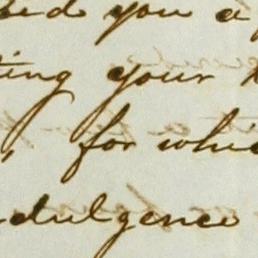 you a
ting your
, for whic
ndulgence